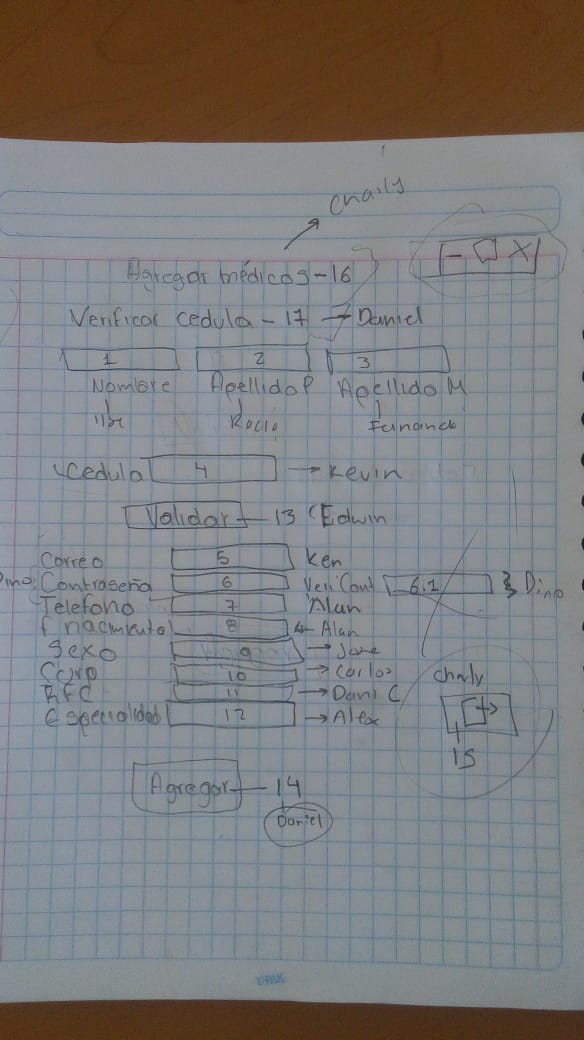 Charly
- X
Agregar médicos - 16
Verificar cedula - 17 → Daniel
1 2 3
Nombre Apellido P Apellido M
Rocio Fernando
Cedula 4 → Kevin
Validar 13 Edwin
Correo 5 Ken
Contraseña 6 Veri Cont 6.1 } Dino
Telefono 7 Alan
f nacimiento 8 ← Alan
Sexo 9 → Jose
10 → Carlos
RFC 11 → Dani C
Especialidad 12 → Alex
charly
15
Agregar 14
Daniel